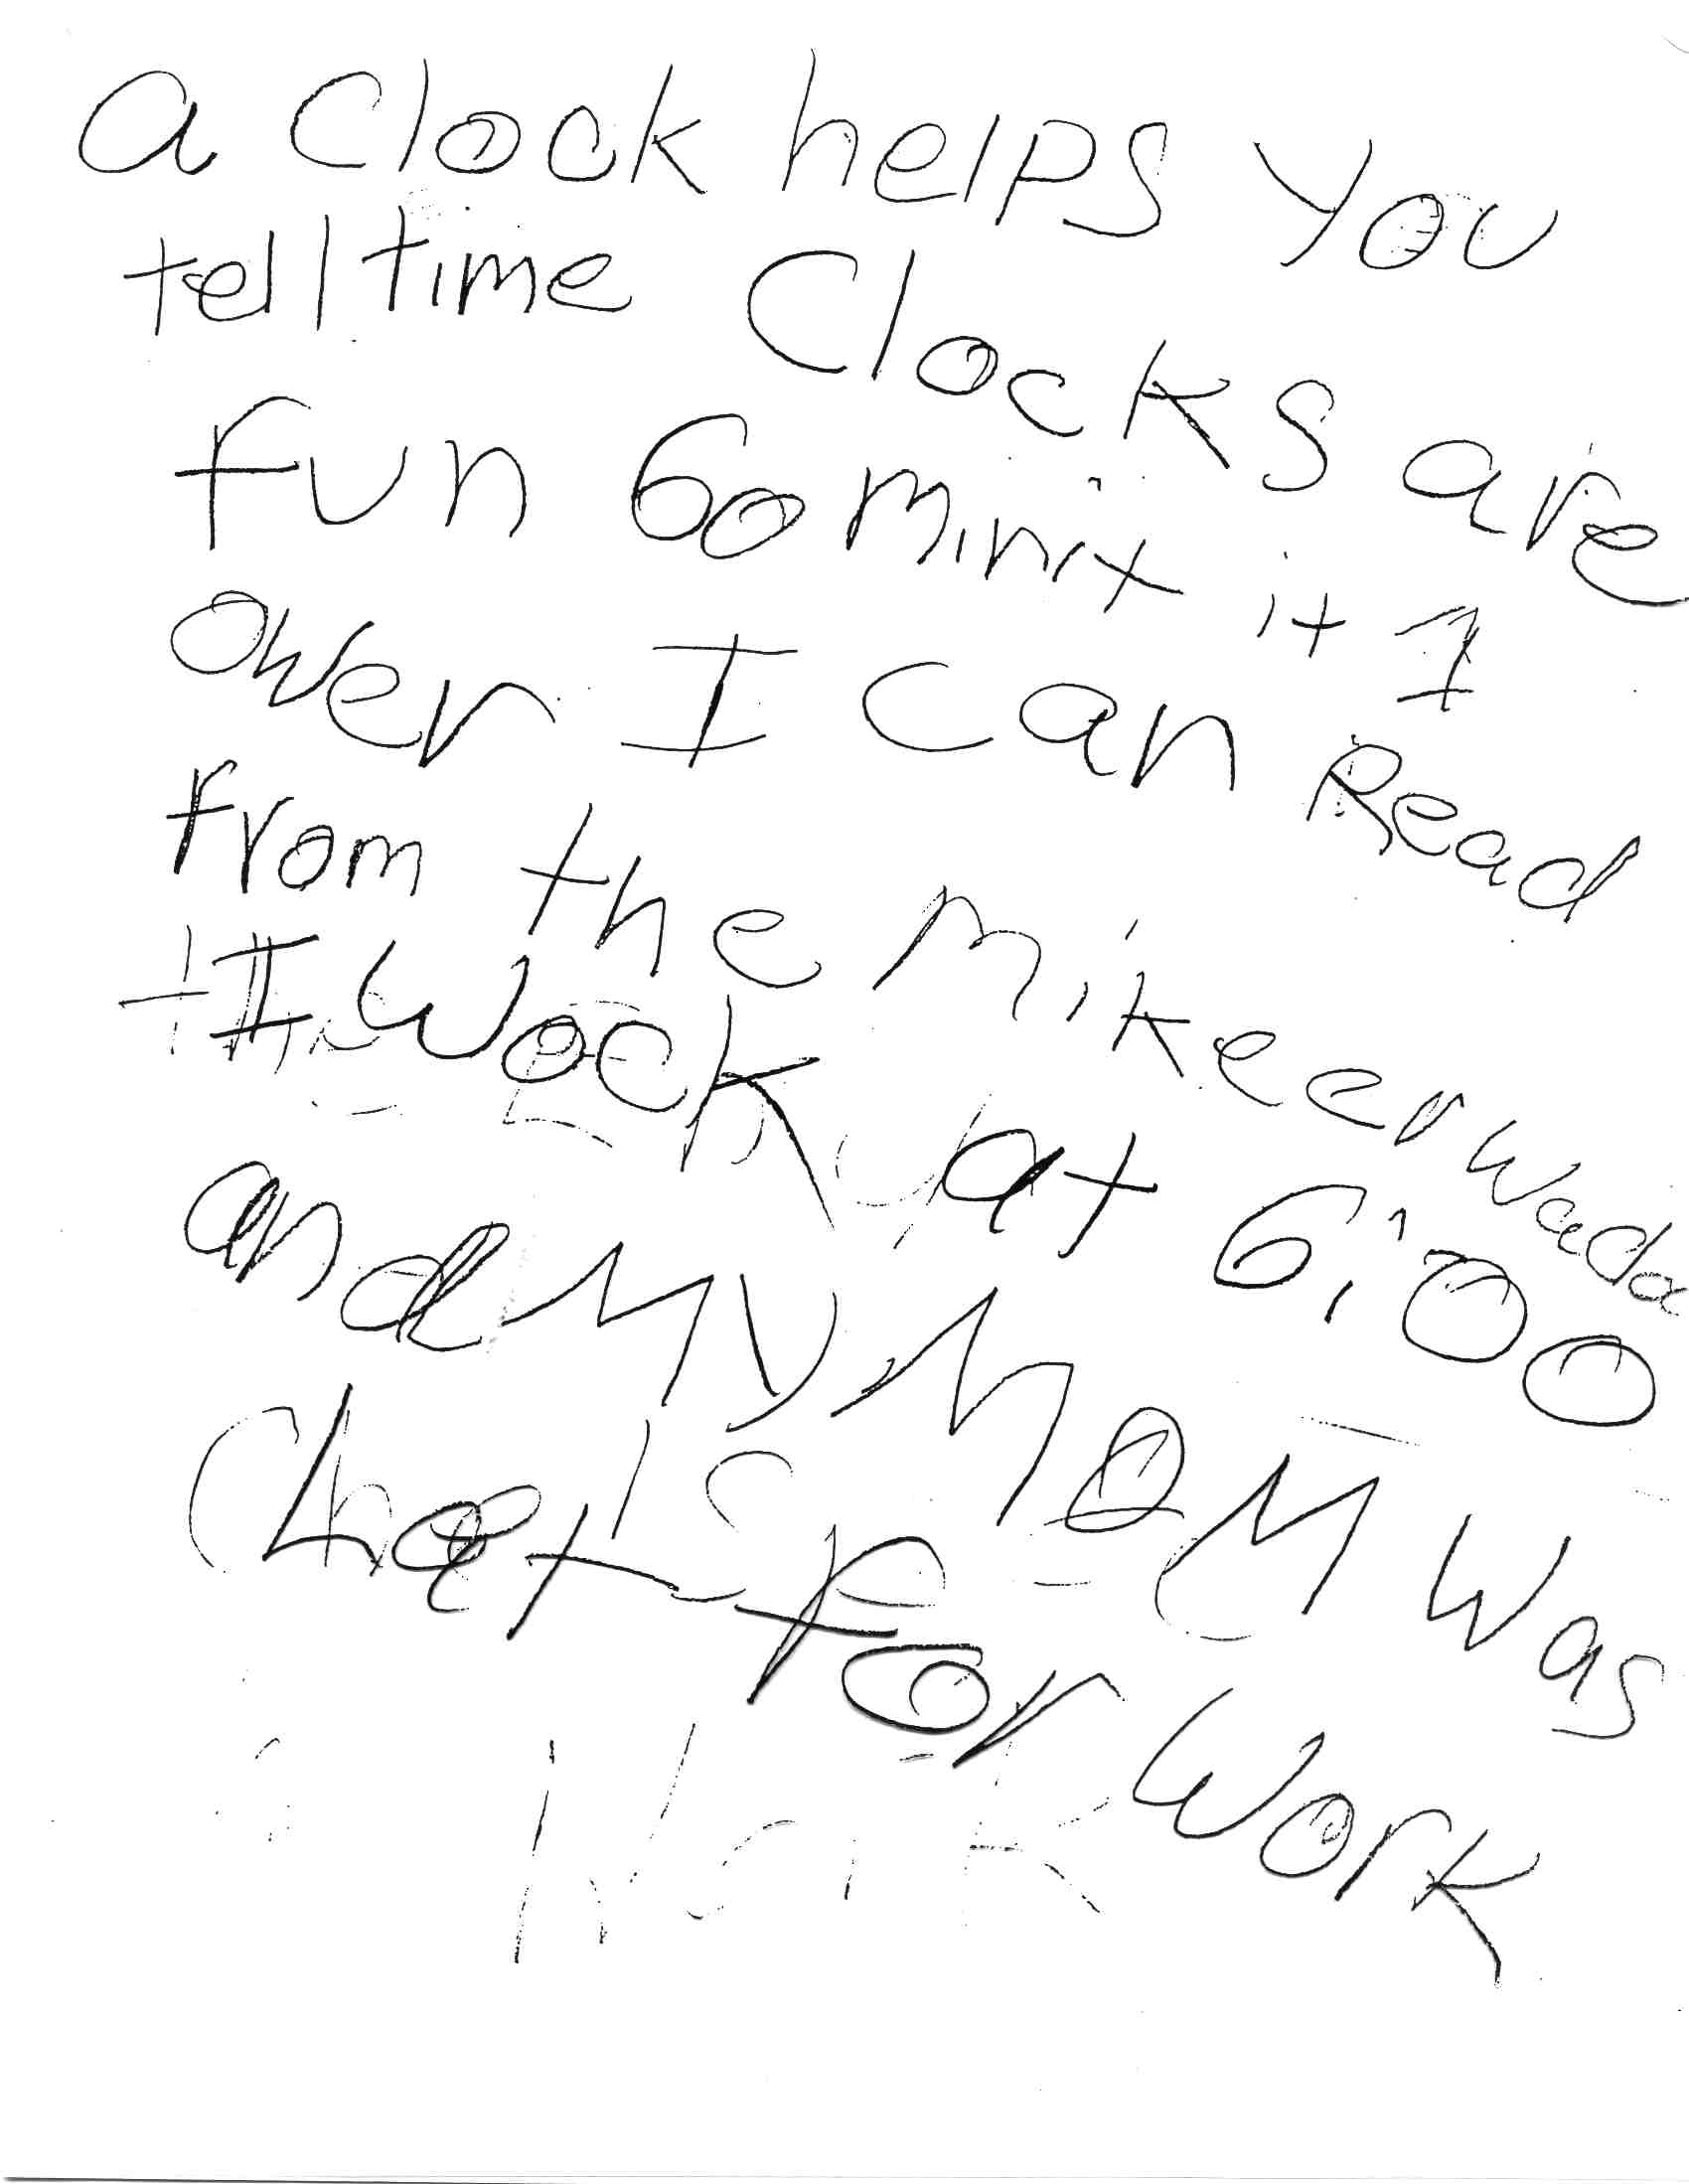 a Clock helps you
tell time Clocks are
fun 60 minit it 1
ower I can Read
from the mikeerwada
I wock at 6:00
and My MOM was
Lhet for work